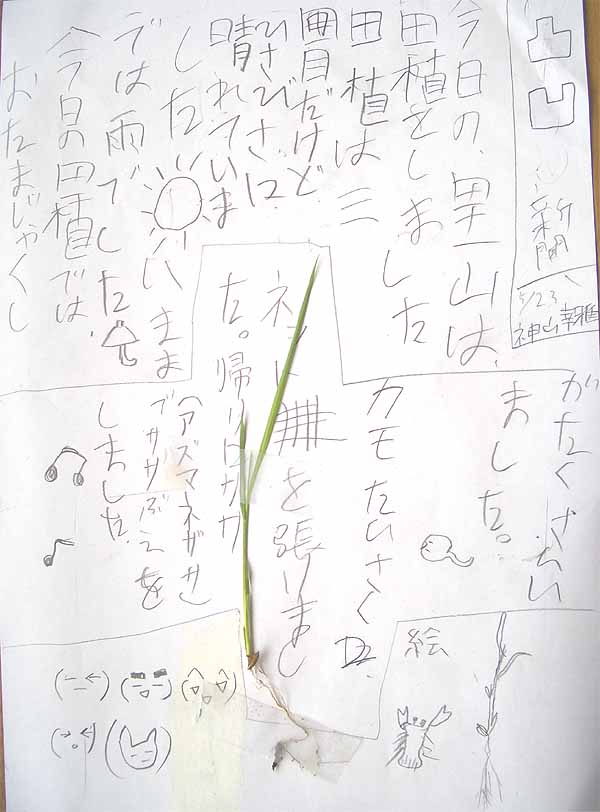 凸凹新聞
5/23
今日の里山は、
田植をしました
田植は三
回目だけど
ひさびさに
晴れていま
した いまま
では雨でした
今日の田植では、
おたまじゃくし
がたくさんい
ました。
カモたいさく
で、
を張りまし
た。帰りにササ
(アズマネザサ)
でササぶえを
しました。
絵